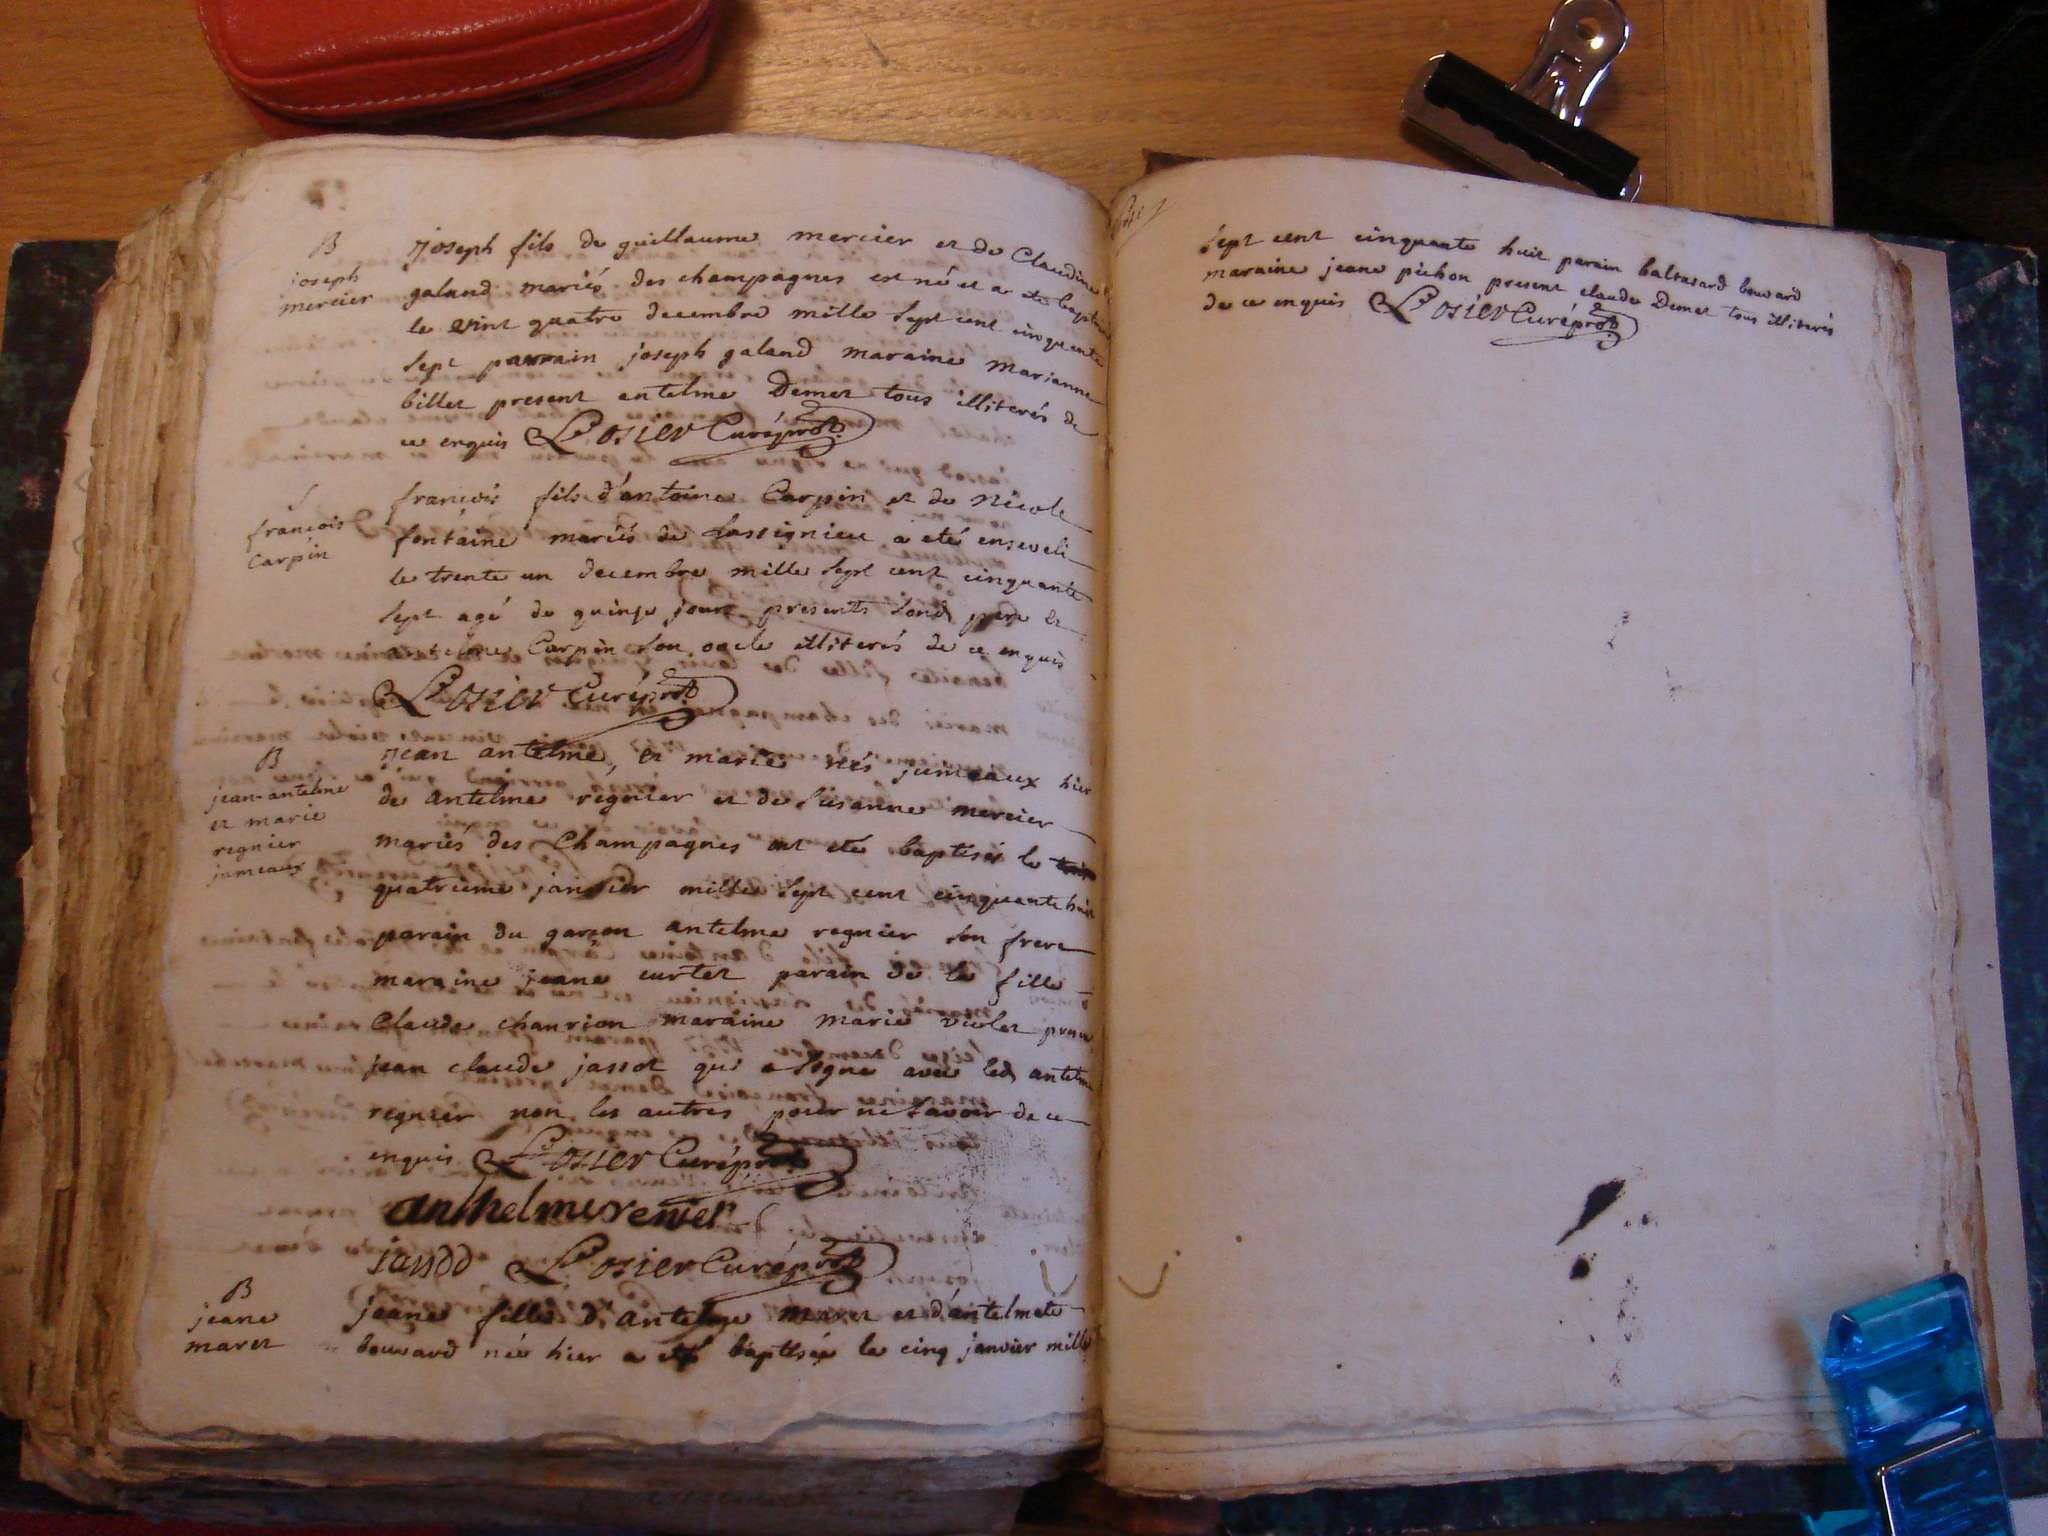 B
joseph
mercier
joseph fils de guillaume mercier et de Claudine
galand mariés des champagnes est né et a eté baptisé
le vint quatre decembre mille sept cent cinquante
sept parrain joseph galand maraine marianne
billet present antelme Demet tous illiterés de
ce enquis Losier Curé
françois
Carpin
françois fils d'antoine Carpin et de Nicole
fontaine mariés de Lassignieu a eté enseveli
le trente un decembre mille sept cent cinquante
sept agé de quinze jours presents sond pere et
antelme Carpin son oncle illiterés de ce enquis
Losier Curé
B
jean-antelme
et marie
regnier
jumeaux
jean antelme, et marie nés jumeaux hier
de antelme regnier et de Susanne mercier
mariés des Champagnes ont eté baptisés le
quatrieme janvier mille sept cent cinquante huit
parain du garçon antelme regnier son frere
maraine jeane curtet parain de la fille
Claude chanrion maraine marie violet present
jean claude jassot qui a signe avec led antelme
regnier non les autres pour ne savoir de ce
enquis Losier Curé
anthelme renier
Losier Curé
B
jeane
maret
jeane fille d'antelme maret et d'antelmete
bouvard née hier a eté baptisée le cinq janvier mille
sept cent cinquante huit parain baltasard bouvard
maraine jeane pichon present claude Demet tous illiterés
de ce enquis Losier Curé